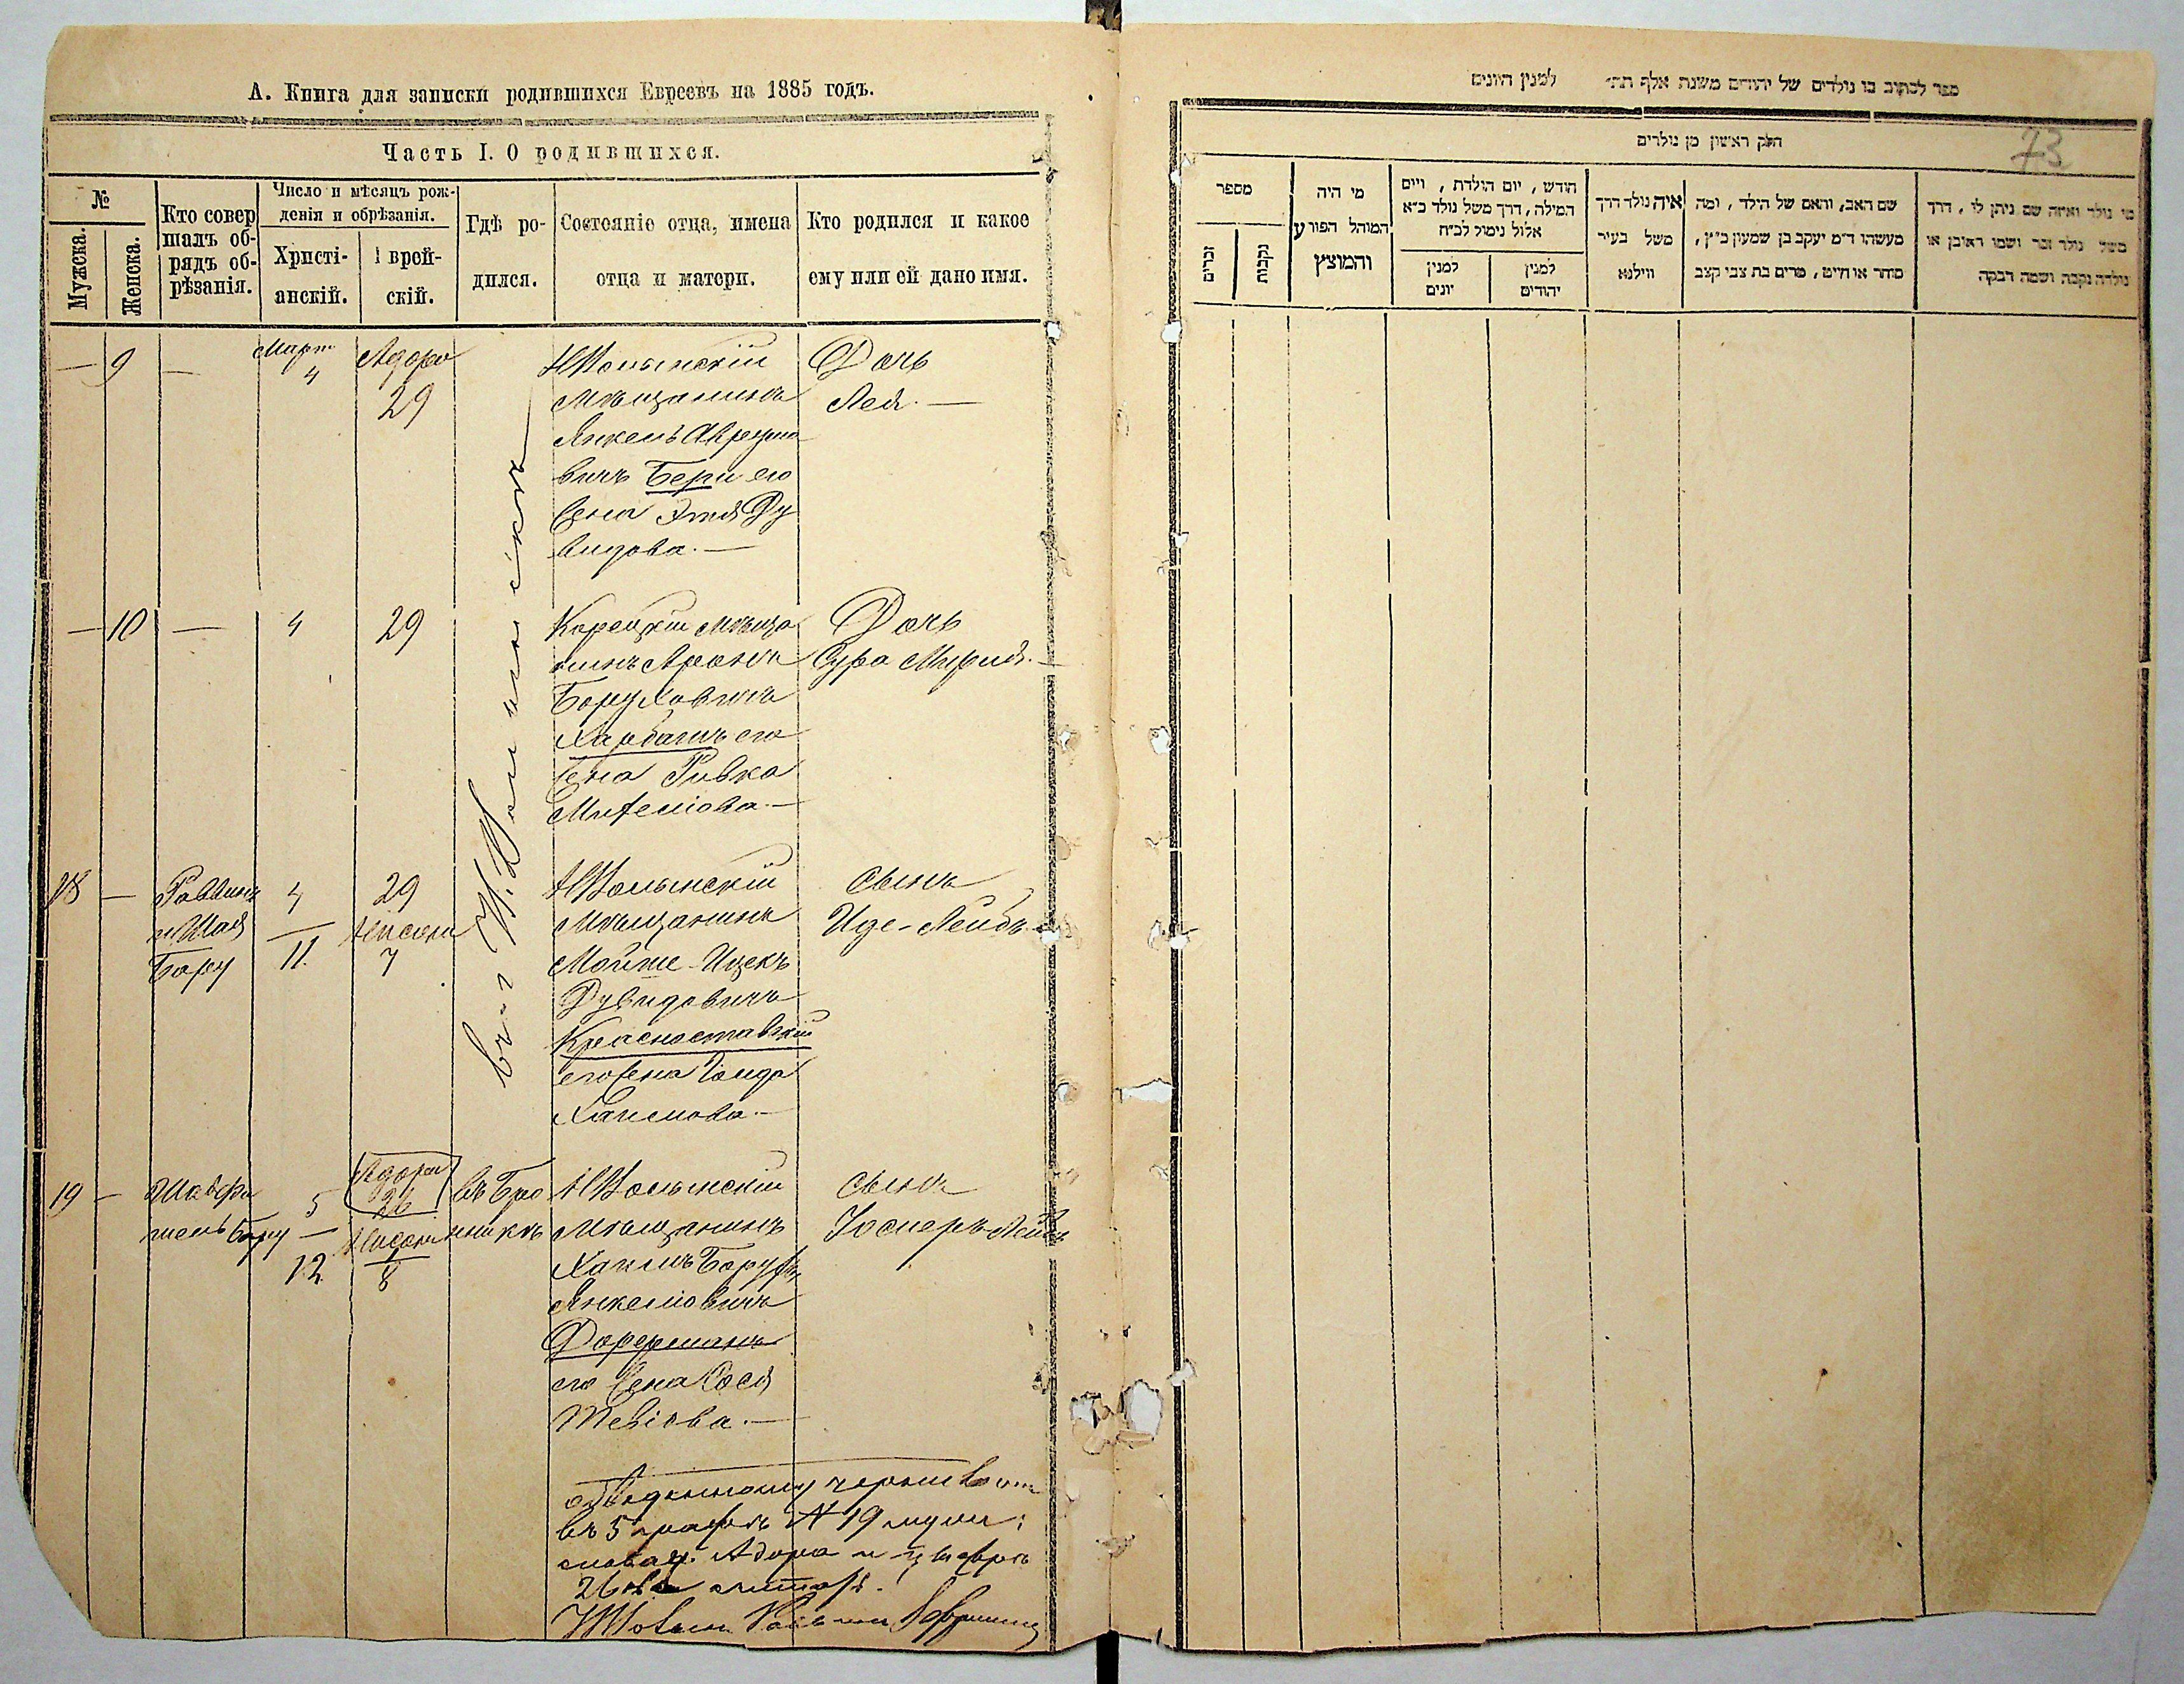 А. Книга для записки родившихся Евреевъ на 1885 годъ.
Часть I. О родившихся.
№
Мужеска.
Женска.
Кто совер
шалъ об-
рядъ об-
рѣзанія.
Число и мѣсяцъ рож-
денія и обрѣзанія.
Христі-
анскій.
врей-
скій.
Гдѣ ро-
дился.
Состояніе отца, имена
отца и матери.
Кто родился и какое
ему или ей дано имя.
— 9 —
Март
4
Адора
29
НВолынскій
мѣщанинъ
Янкель Авруmo
вичъ Бери его
жена Этя Ду
видова. —
Дочь
Лея. —
— 10 —
4
29
Корецкій мѣща
нинъ Аронъ
Боруховичъ
его
жена Ривка
Михелiова. —
Дочь
Сура Мириа. —
18 —
Раввинъ
и Шая
Бару
4
—
11.
29
Нисонъ
7
НВолынскій
мѣщанинъ
Мойше-Ицекъ
Дувидовичъ
Красноставскій
его жена Голда
Хаимова. —
сынъ
Иде-Лейбъ. —
въ г. Н. Волынскѣ
19 —
Бару
5
—
12
Адора
26
Нисонъ
8
въ Бро
никкѣ
НВолынскій
мѣщанинъ
Хаимъ Борухъ
Янкелiовичъ
Дорферманъ
его жена Сося
Шевiова. —
сынъ
Iосперъ-Лейбъ
въ 5 графѣ № 19 муж:
слова: Адора и цыфръ
26 не читать.
ספר לכתוב בו נולדים של יהודים משנת אלף תת״ למנין היונים
חלק ראשון מן נולדים
73
מספר
זכרים
נקבות
מי היה
המוהל הפורע
והמוצץ
חודש, יום הולדת, ויום
המילה, דרך משל נולד כ״א
אלול נימול לכ״ח
למנין
יונים
למנין
יהודים
איה נולד דרך
משל בעיר
ווילנא
שם האב, והאם של הילד, ומה
מעשהו ד״מ יעקב בן שמעון כ״ץ,
סוחר או חייט, מרים בת צבי קצב
מי נולד ואיזה שם ניתן לו, דרך
משל נולד זכר ושמו ראובן או
נולדה נקבה ושמה רבקה